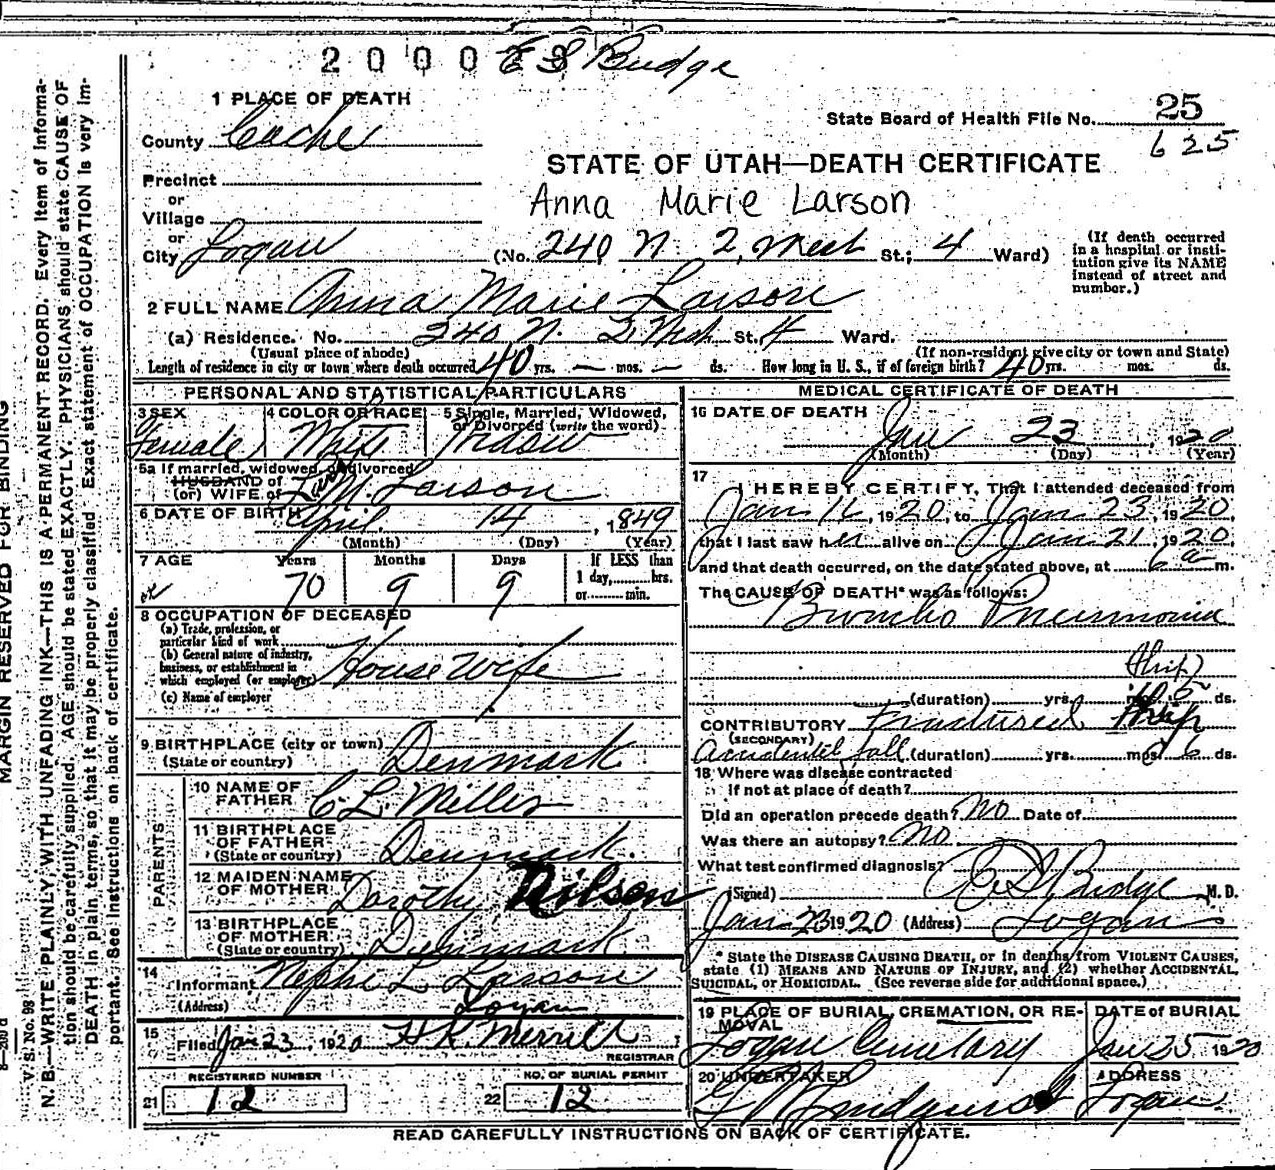 2 0 0 0 E S Budge
1 PLACE OF DEATH
County Cache
State Board of Health File No. 25
625
STATE OF UTAH—DEATH CERTIFICATE
Precinct
or
Village
Anna Marie Larson
or
City Logan (No. 240 N 2 West St.; 4 Ward)
(If death occurred in a hospital or institution give its NAME instead of street and number.)
2 FULL NAME Anna Marie Larson
(a) Residence. No. 240 N. 2 West St. 4 Ward.
(Usual place of abode) (If non-resident give city or town and State)
Length of residence in city or town where death occurred 40 yrs. — mos. — ds. How long in U. S., if of foreign birth? 40 yrs. mos. ds.
PERSONAL AND STATISTICAL PARTICULARS
3 SEX Female
4 COLOR OR RACE White
5 Single, Married, Widowed, or Divorced (write the word) Widow
5a If married, widowed, or divorced
HUSBAND of
(or) WIFE of M. Larson
6 DATE OF BIRTH April 14, 1849
(Month) (Day) (Year)
7 AGE Years Months Days If LESS than
70 9 9 1 day, hrs.
or min.
8 OCCUPATION OF DECEASED
(a) Trade, profession, or
particular kind of work
(b) General nature of industry,
business, or establishment in
which employed (or employer) House wife
(c) Name of employer
9 BIRTHPLACE (city or town) Denmark
(State or country)
PARENTS
10 NAME OF FATHER C L Miller
11 BIRTHPLACE OF FATHER Denmark.
(State or country)
12 MAIDEN NAME OF MOTHER Dorothy Nilsen
13 BIRTHPLACE OF MOTHER Denmark
(State or country)
14 Informant Nephi L Larson
(Address) Logan
15 Filed Jan 23, 1920 H K Merrill
REGISTRAR
REGISTERED NUMBER
21 12
NO. OF BURIAL PERMIT
22 12
MEDICAL CERTIFICATE OF DEATH
16 DATE OF DEATH
Jan 23, 1920
(Month) (Day) (Year)
17
I HEREBY CERTIFY, That I attended deceased from
Jan 16, 1920, to Jan 23, 1920,
that I last saw her alive on Jan 21, 1920,
and that death occurred, on the date stated above, at 6 a m.
The CAUSE OF DEATH* was as follows:
Broncho Pneumonia
(hip)
(duration) yrs. mos. 5 ds.
CONTRIBUTORY Fractured Hip
(SECONDARY)
Accidental fall (duration) yrs. mos. 6 ds.
18 Where was disease contracted
If not at place of death?
Did an operation precede death? No Date of
Was there an autopsy? No
What test confirmed diagnosis?
(Signed) E S Budge M. D.
Jan 23 1920 (Address) Logan
* State the DISEASE CAUSING DEATH, or in deaths from VIOLENT CAUSES,
state (1) MEANS AND NATURE OF INJURY, and (2) whether ACCIDENTAL,
SUICIDAL, or HOMICIDAL. (See reverse side for additional space.)
19 PLACE OF BURIAL, CREMATION, OR REMOVAL
Logan Cemetary
DATE of BURIAL
Jan 25 1920
20 UNDERTAKER
Lindquist
ADDRESS
Logan
READ CAREFULLY INSTRUCTIONS ON BACK OF CERTIFICATE.
MARGIN RESERVED FOR BINDING
V. S. No. 98
N. B.—WRITE PLAINLY, WITH UNFADING INK—THIS IS A PERMANENT RECORD. Every item of information should be carefully supplied. AGE should be stated EXACTLY. PHYSICIANS should state CAUSE OF DEATH in plain terms, so that it may be properly classified. Exact statement of OCCUPATION is very important. See instructions on back of certificate.